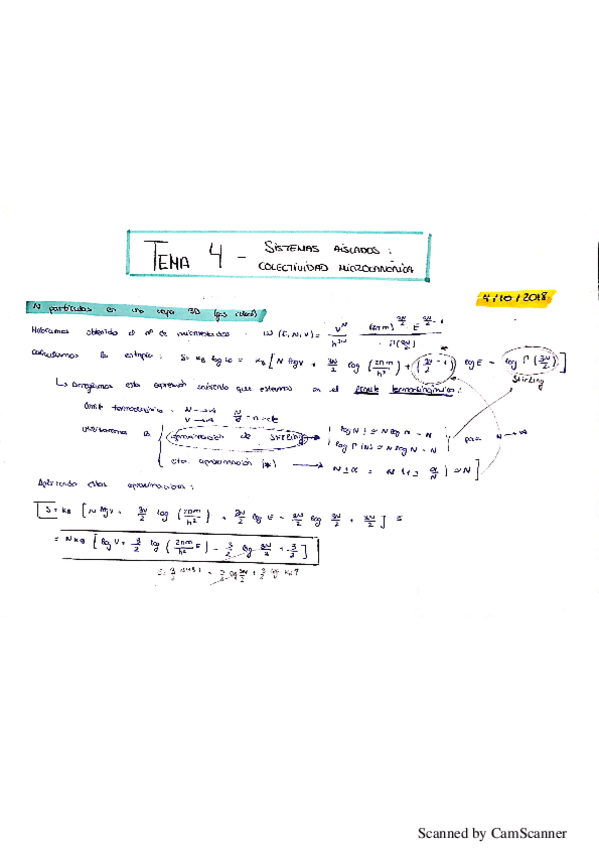 TEMA 4 - SISTEMAS AISLADOS:
COLECTIVIDAD MICROCANÓNICA
4/10/2018
N partículas en una caja 3D (gas ideal)
Habíamos obtenido el nº de microestados: ω(E,N,V) = V^N / h^{3N} · (2πm)^{3N/2} E^{3N/2 - 1} / Γ(3N/2)
Calculamos la entropía: S = kB log ω = kB [ N log V + 3N/2 log (2πm/h²) + (3N/2 - 1) log E - log Γ(3N/2) ]
Stirling
↳ arreglamos esta expresión sabiendo que estamos en el límite termodinámico:
límite termodinámico: N → ∞ V → ∞ N/V = n = cte
utilizaremos la { aproximación de Stirling → { log N! ≃ N log N - N
log Γ(N) ≃ N log N - N } para N → ∞
otra aproximación (*) → N ± α = N (1 ± α/N) ≃ N ]
Aplicando estas aproximaciones:
S = kB [ N log V + 3N/2 log (2πm/h²) + 3N/2 log E - 3N/2 log 3N/2 + 3N/2 ] =
= N kB [ log V + 3/2 log (2πm/h² E) - 3/2 log 3N/2 + 3/2 ]
Scanned by CamScanner